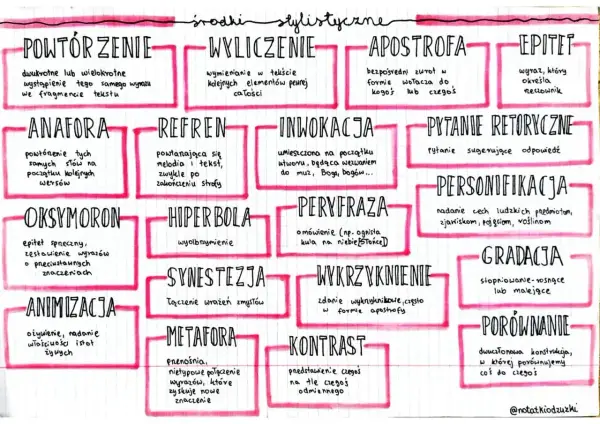 środki stylistyczne
POWTÓRZENIE
dwukrotne lub wielokrotne
wystąpienie tego samego wyrazu
we fragmencie tekstu
WYLICZENIE
wymienianie w tekście
kolejnych elementów pewnej
całości
APOSTROFA
bezpośredni zwrot w
formie wołacza do
kogoś lub czegoś
EPITET
wyraz, który
określa
rzeczownik
ANAFORA
powtórzenie tych
samych słów na
początku kolejnych
wersów
REFREN
powtarzająca się
melodia i tekst,
zwykle po
zakończeniu strofy
INWOKACJA
umieszczona na początku
utworu, będąca wezwaniem
do muz, Boga, bogów...
PYTANIE RETORYCZNE
Pytanie sugerujące odpowiedź
OKSYMORON
epitet sprzeczny,
zestawienie wyrazów
o przeciwstawnych
znaczeniach
HIPERBOLA
wyolbrzymienie
PERYFRAZA
omówienie (np. ognista
kula na niebie[słońce])
PERSONIFIKACJA
nadanie cech ludzkich przedmiotom,
zjawiskom, pojęciom, roślinom
SYNESTEZJA
łączenie wrażeń zmysłów
WYKRZYKNIENIE
zdanie wykrzyknikowe, często
w formie apostrofy
GRADACJA
stopniowanie-rosnące
lub malejące
ANIMIZACJA
ożywienie, nadanie
właściwości istot
żywych
METAFORA
przenośnia,
nietypowe połączenie
wyrazów, które
zyskuje nowe
znaczenie
KONTRAST
przedstawienie czegoś
na tle czegoś
odmiennego
PORÓWNANIE
dwuczłonowa konstrukcja,
w której porównujemy
coś do czegoś
@notatkiodzuzki